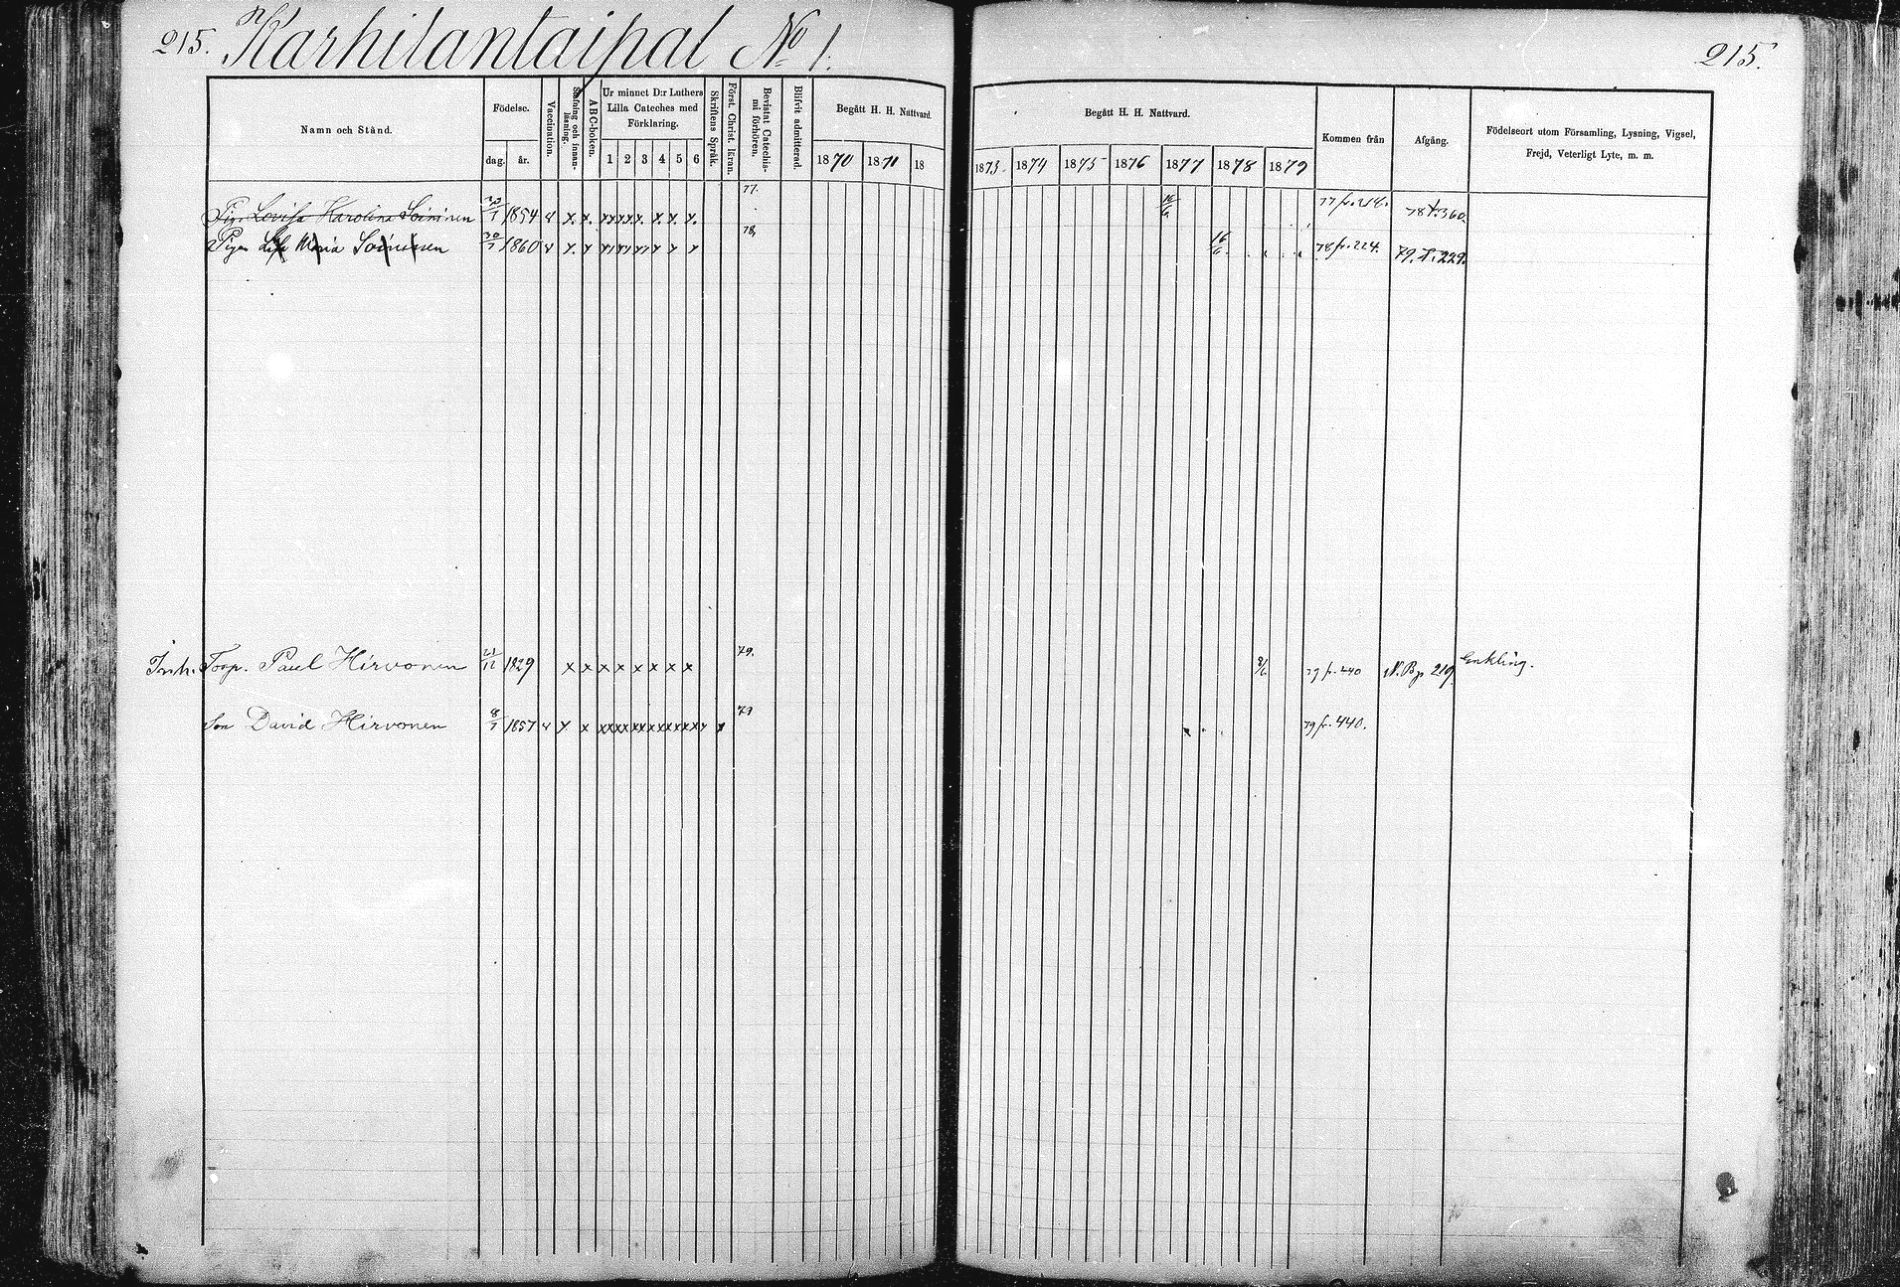 215. Karhilantaipal No 1. 215.
Namn och Stånd. Födelse. Vaccination. Stafning och innanläsning. ABC-boken. Ur minnet D:r Luthers Lilla Cateches med Förklaring. Skriftens Språk. Först. Christ. lkran. Bevistat Catechismi förhören. Blifvit admitterad. Begått H. H. Nattvard. Begått H. H. Nattvard. Kommen från Afgång. Födelseort utom Församling, Lysning, Vigsel, Frejd, Veterligt Lyte, m. m.
dag. år. 1 2 3 4 5 6 1870 1871 18 1873. 1874 1875 1876 1877 1878 1879
Pig. Lovisa Karolina Soininen 1854 v x. x. xxxxx. x. x. x. 77. 77 fr. 218. 78 t. 360.
Pigan Maria Soininen 30/7 1860 v x. x xxxxxxx x x 78. 16/6 78 fr. 224. 79. t. 229.
Inh. Torp. Paul Hirvonen 21/12 1829 x x x x x x x x 79. 8/6 79 fr. 440 N. B. p. 219 Enkling.
Son David Hirvonen 8/7 1857 v x x xxxxxxxxxxx x 79 79 fr. 440.